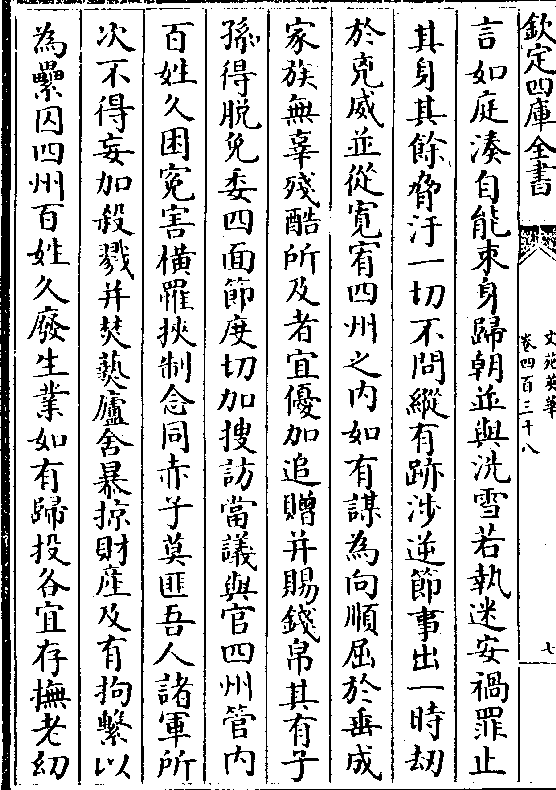 欽定四庫全書
文苑英華
卷四百三十八
七
言如庭湊自能束身歸朝並與洗雪若執迷安禍罪止
其身其餘脅汙一切不問縱有跡涉逆節事出一時刼
於兇威並從寛宥四州之内如有謀為向順屈於垂成
家族無辜殘酷所及者宜優加追贈并賜錢帛其有子
孫得脱免委四面節度切加搜訪當議與官四州管内
百姓久困寃害橫罹挾制念同赤子莫匪吾人諸軍所
次不得妄加殺戮并焚爇廬舍暴掠財産及有拘繫以
為纍囚四州百姓久廢生業如有歸投各宜存撫老幼